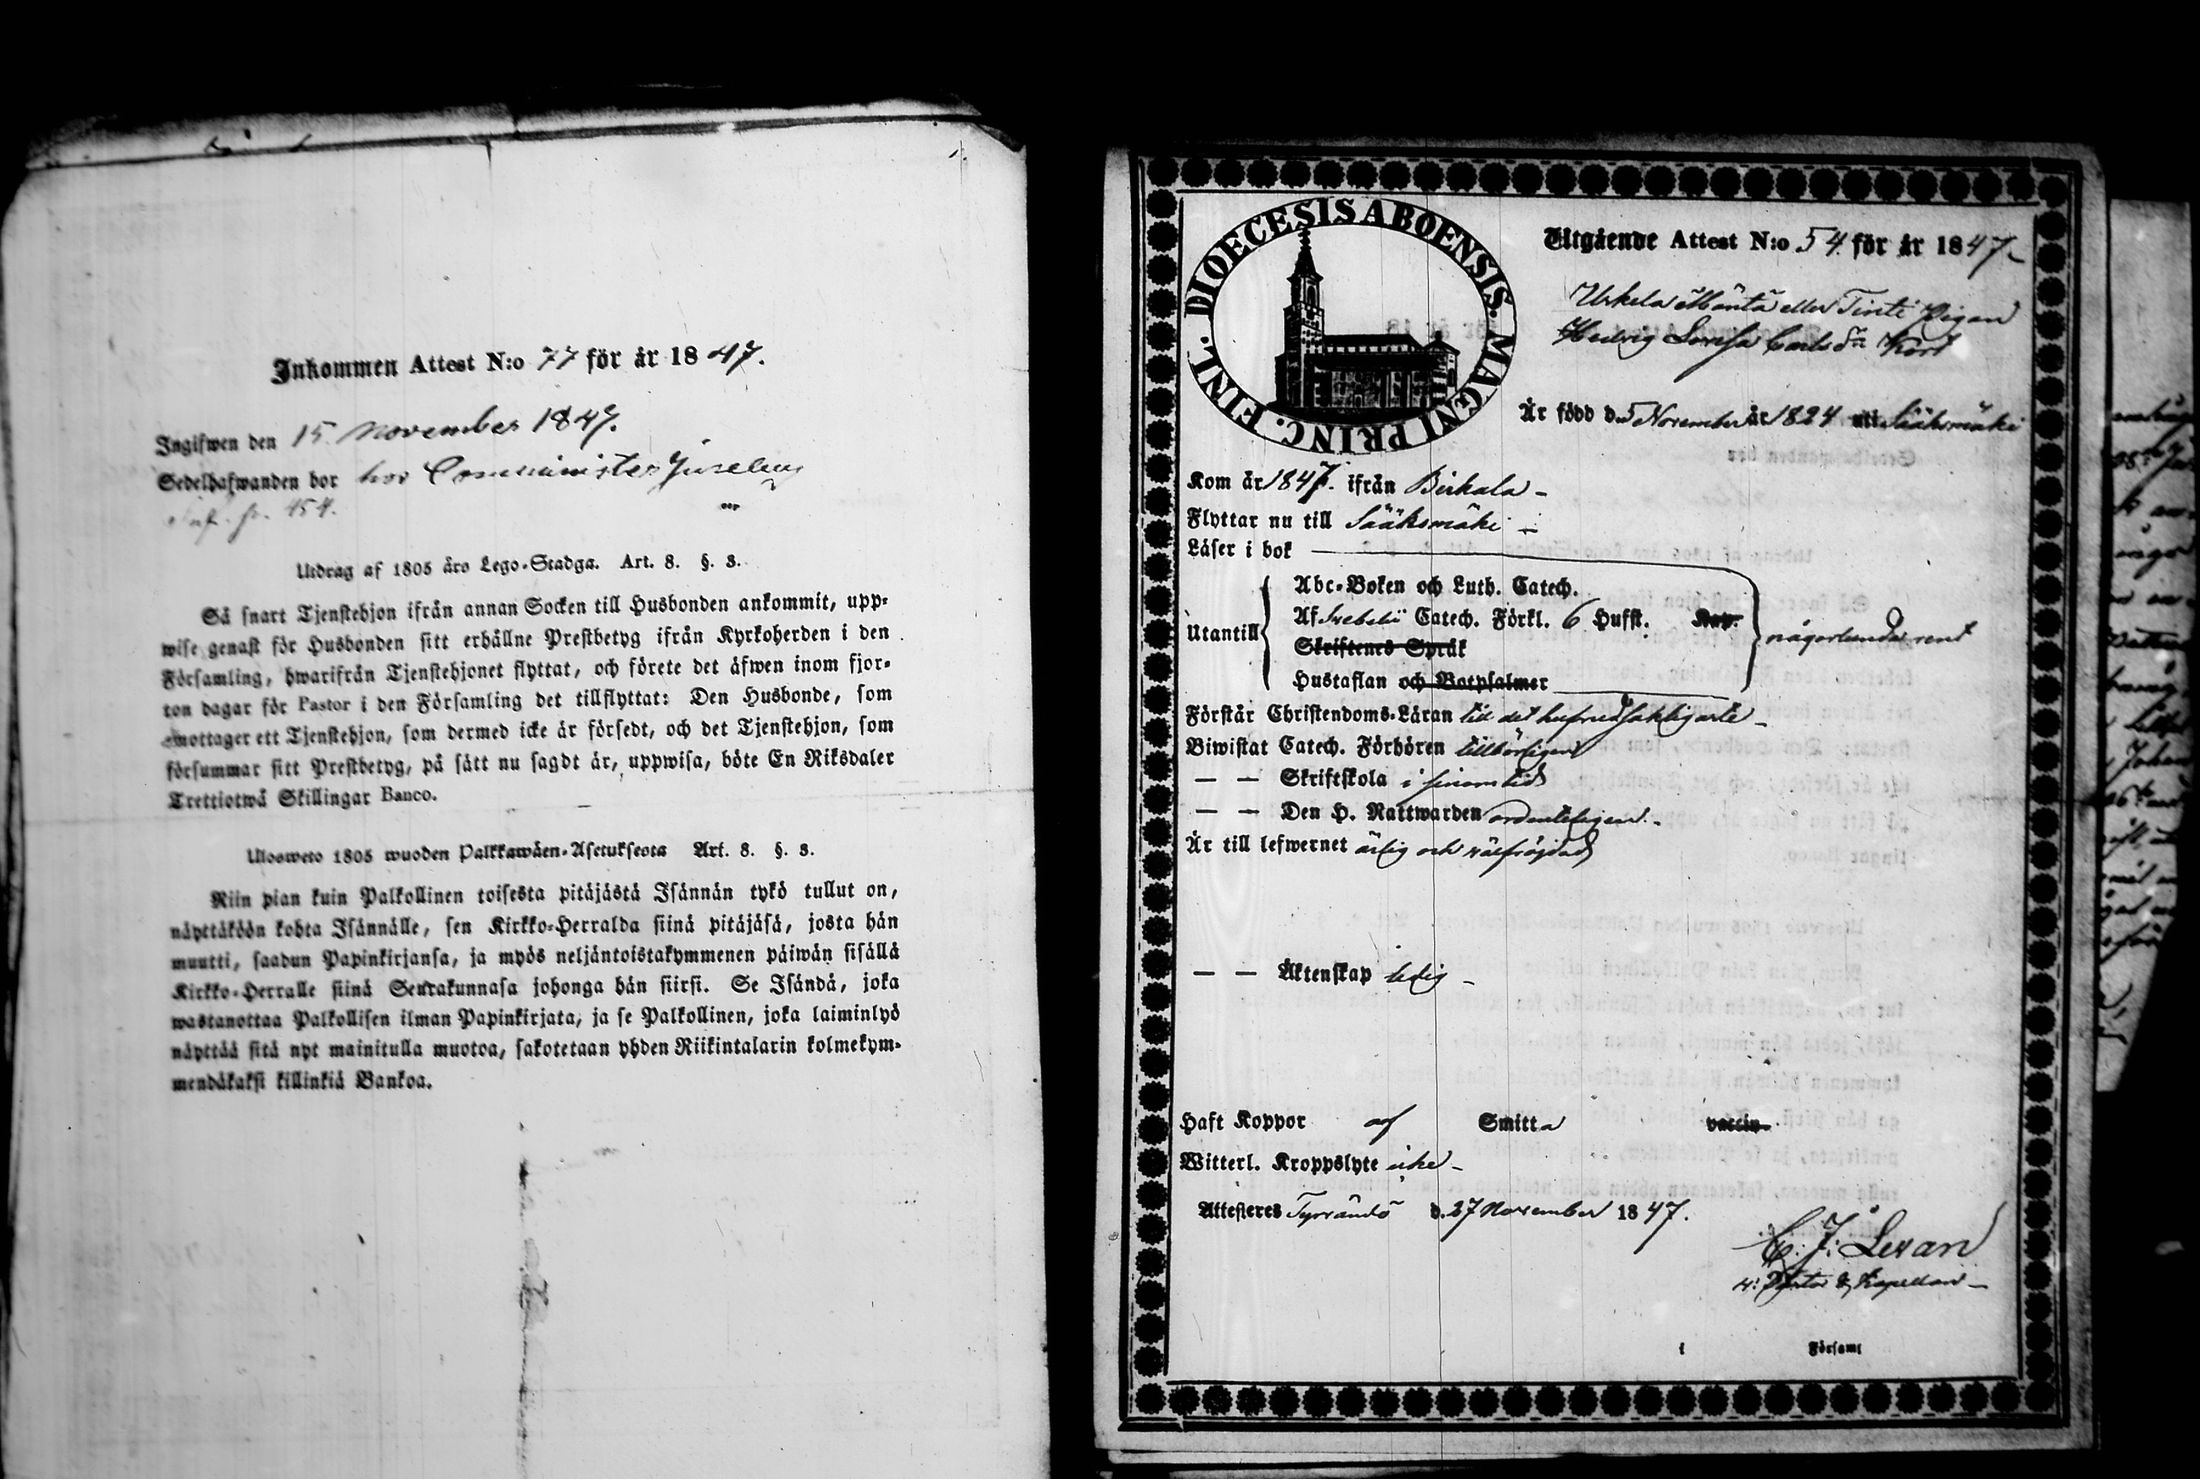 Inkommen Attest N:o 77 för år 1847.
Ingifwen den 15 November 1847.
Sedelhafwanden bor hos Comminister
454.
Utdrag af 1805 års Lego-Stadga. Art. 8. §. 3.
Så snart Tjenstehjon ifrån annan Socken till Husbonden ankommit, upp-
wise genast för Husbonden sitt erhållne Prestbetyg ifrån Kyrkoherden i den
Församling, hwarifrån Tjenstehjonet flyttat, och förete det äfwen inom fjor-
ton dagar för Pastor i den Församling det tillflyttat: Den Husbonde, som
emottager ett Tjenstehjon, som dermed icke är försedt, och det Tjenstehjon, som
försummar sitt Prestbetyg, på sätt nu sagdt är, uppwisa, böte En Riksdaler
Trettiotwå Skillingar Banco.
Ulosweto 1805 wuoden Palkkawäen-Asetuksesta Art. 8. §. 3.
Niin pian kuin Palkollinen toisesta pitäjästä Isännän tykö tullut on,
näyttäköön kohta Isännälle, sen Kirkko-Herralda siinä pitäjäsä, josta hän
muutti, saadun Papinkirjansa, ja myös neljäntoistakymmenen päiwän sisällä
Kirkko-Herralle siinä Seurakunnasa johonga hän siirsi. Se Isändä, joka
wastanottaa Palkollisen ilman Papinkirjata, ja se Palkollinen, joka laiminlyö
näyttää sitä nyt mainitulla muotoa, sakotetaan yhden Riikintalarin kolmekym-
mendäkaksi killinkiä Bankoa.
DIOECESIS ABOENSIS. MAGNI PRINC. FINL.
Utgående Attest N:o 54 för år 1847
Urkela Mäntä eller Tinti Pigan
Hedvig Lovisa Carlsdr
Är född d. 5 November år 1824 uti Sääksmäki
Kom år 1847. ifrån Birkala
Flyttar nu till Sääksmäki
Läser i bok
Abc-Boken och Luth. Catech.
Utantill Af Svebelii Catech. Förkl. 6 Hufst. Kap. någorlunda rent
Skriftenes Språk
Hustaflan och Botpsalmer
Förstår Christendoms-Läran till det hufvudsakligaste
Biwistat Catech. Förhören tillbörligen
— — Skriftskola i sinom tid
— — Den H. Nattwarden ordenteligen
Är till lefwernet ärlig och välfrejdad
— — Äktenskap ledig
Haft Koppor af Smitta vaccin.
Witterl. Kroppslyte icke
Attesteras Tyrvändö d. 27 November 1847.
C. J. Levan
Kapellan
i Församl